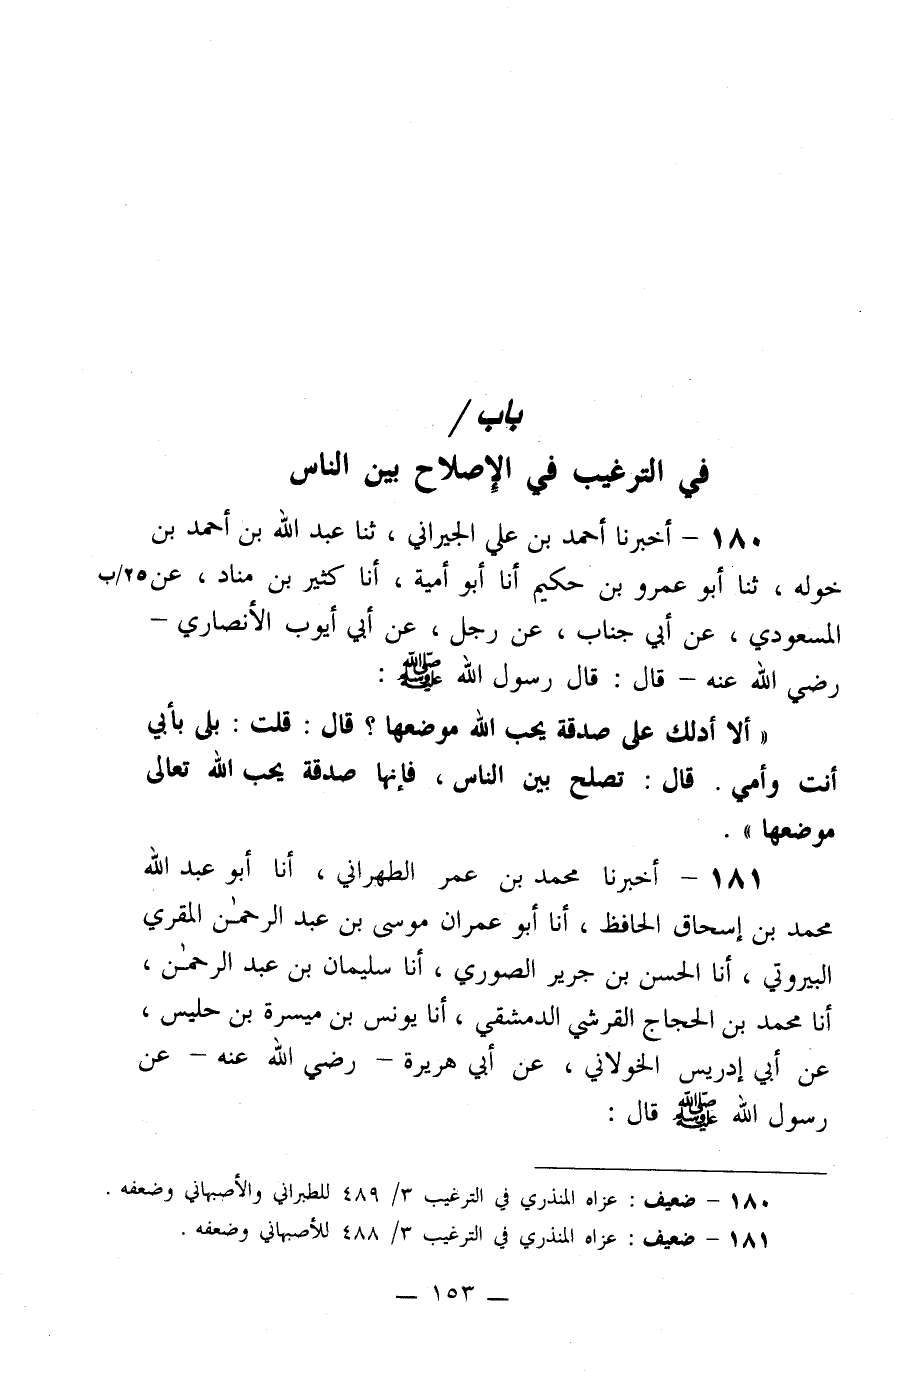 باب /
في الترغيب في الإصلاح بين الناس
١٨٠ – أخبرنا أحمد بن علي الجيراني ، ثنا عبد الله بن أحمد بن
خوله ، ثنا أبو عمرو بن حكيم أنا أبو أمية ، أنا كثير بن مناد ، عن ٢٥/ب
المسعودي ، عن أبي جناب ، عن رجل ، عن أبي أيوب الأنصاري –
رضي الله عنه – قال : قال رسول الله ﷺ :
« ألا أدلك على صدقة يحب الله موضعها ؟ قال : قلت : بلى بأبي
أنت وأمي . قال : تصلح بين الناس ، فإنها صدقة يحب الله تعالى
موضعها » .
١٨١ – أخبرنا محمد بن عمر الطهراني ، أنا أبو عبد الله
محمد بن إسحاق الحافظ ، أنا أبو عمران موسى بن عبد الرحمٰن المقري
البيروتي ، أنا الحسن بن جرير الصوري ، أنا سليمان بن عبد الرحمٰن ،
أنا محمد بن الحجاج القرشي الدمشقي ، أنا يونس بن ميسرة بن حليس ،
عن أبي إدريس الخولاني ، عن أبي هريرة – رضي الله عنه – عن
رسول الله ﷺ قال :
١٨٠ – ضعيف : عزاه المنذري في الترغيب ٣/ ٤٨٩ للطبراني والأصبهاني وضعفه .
١٨١ – ضعيف : عزاه المنذري في الترغيب ٣/ ٤٨٨ للأصبهاني وضعفه .
– ١٥٣ –